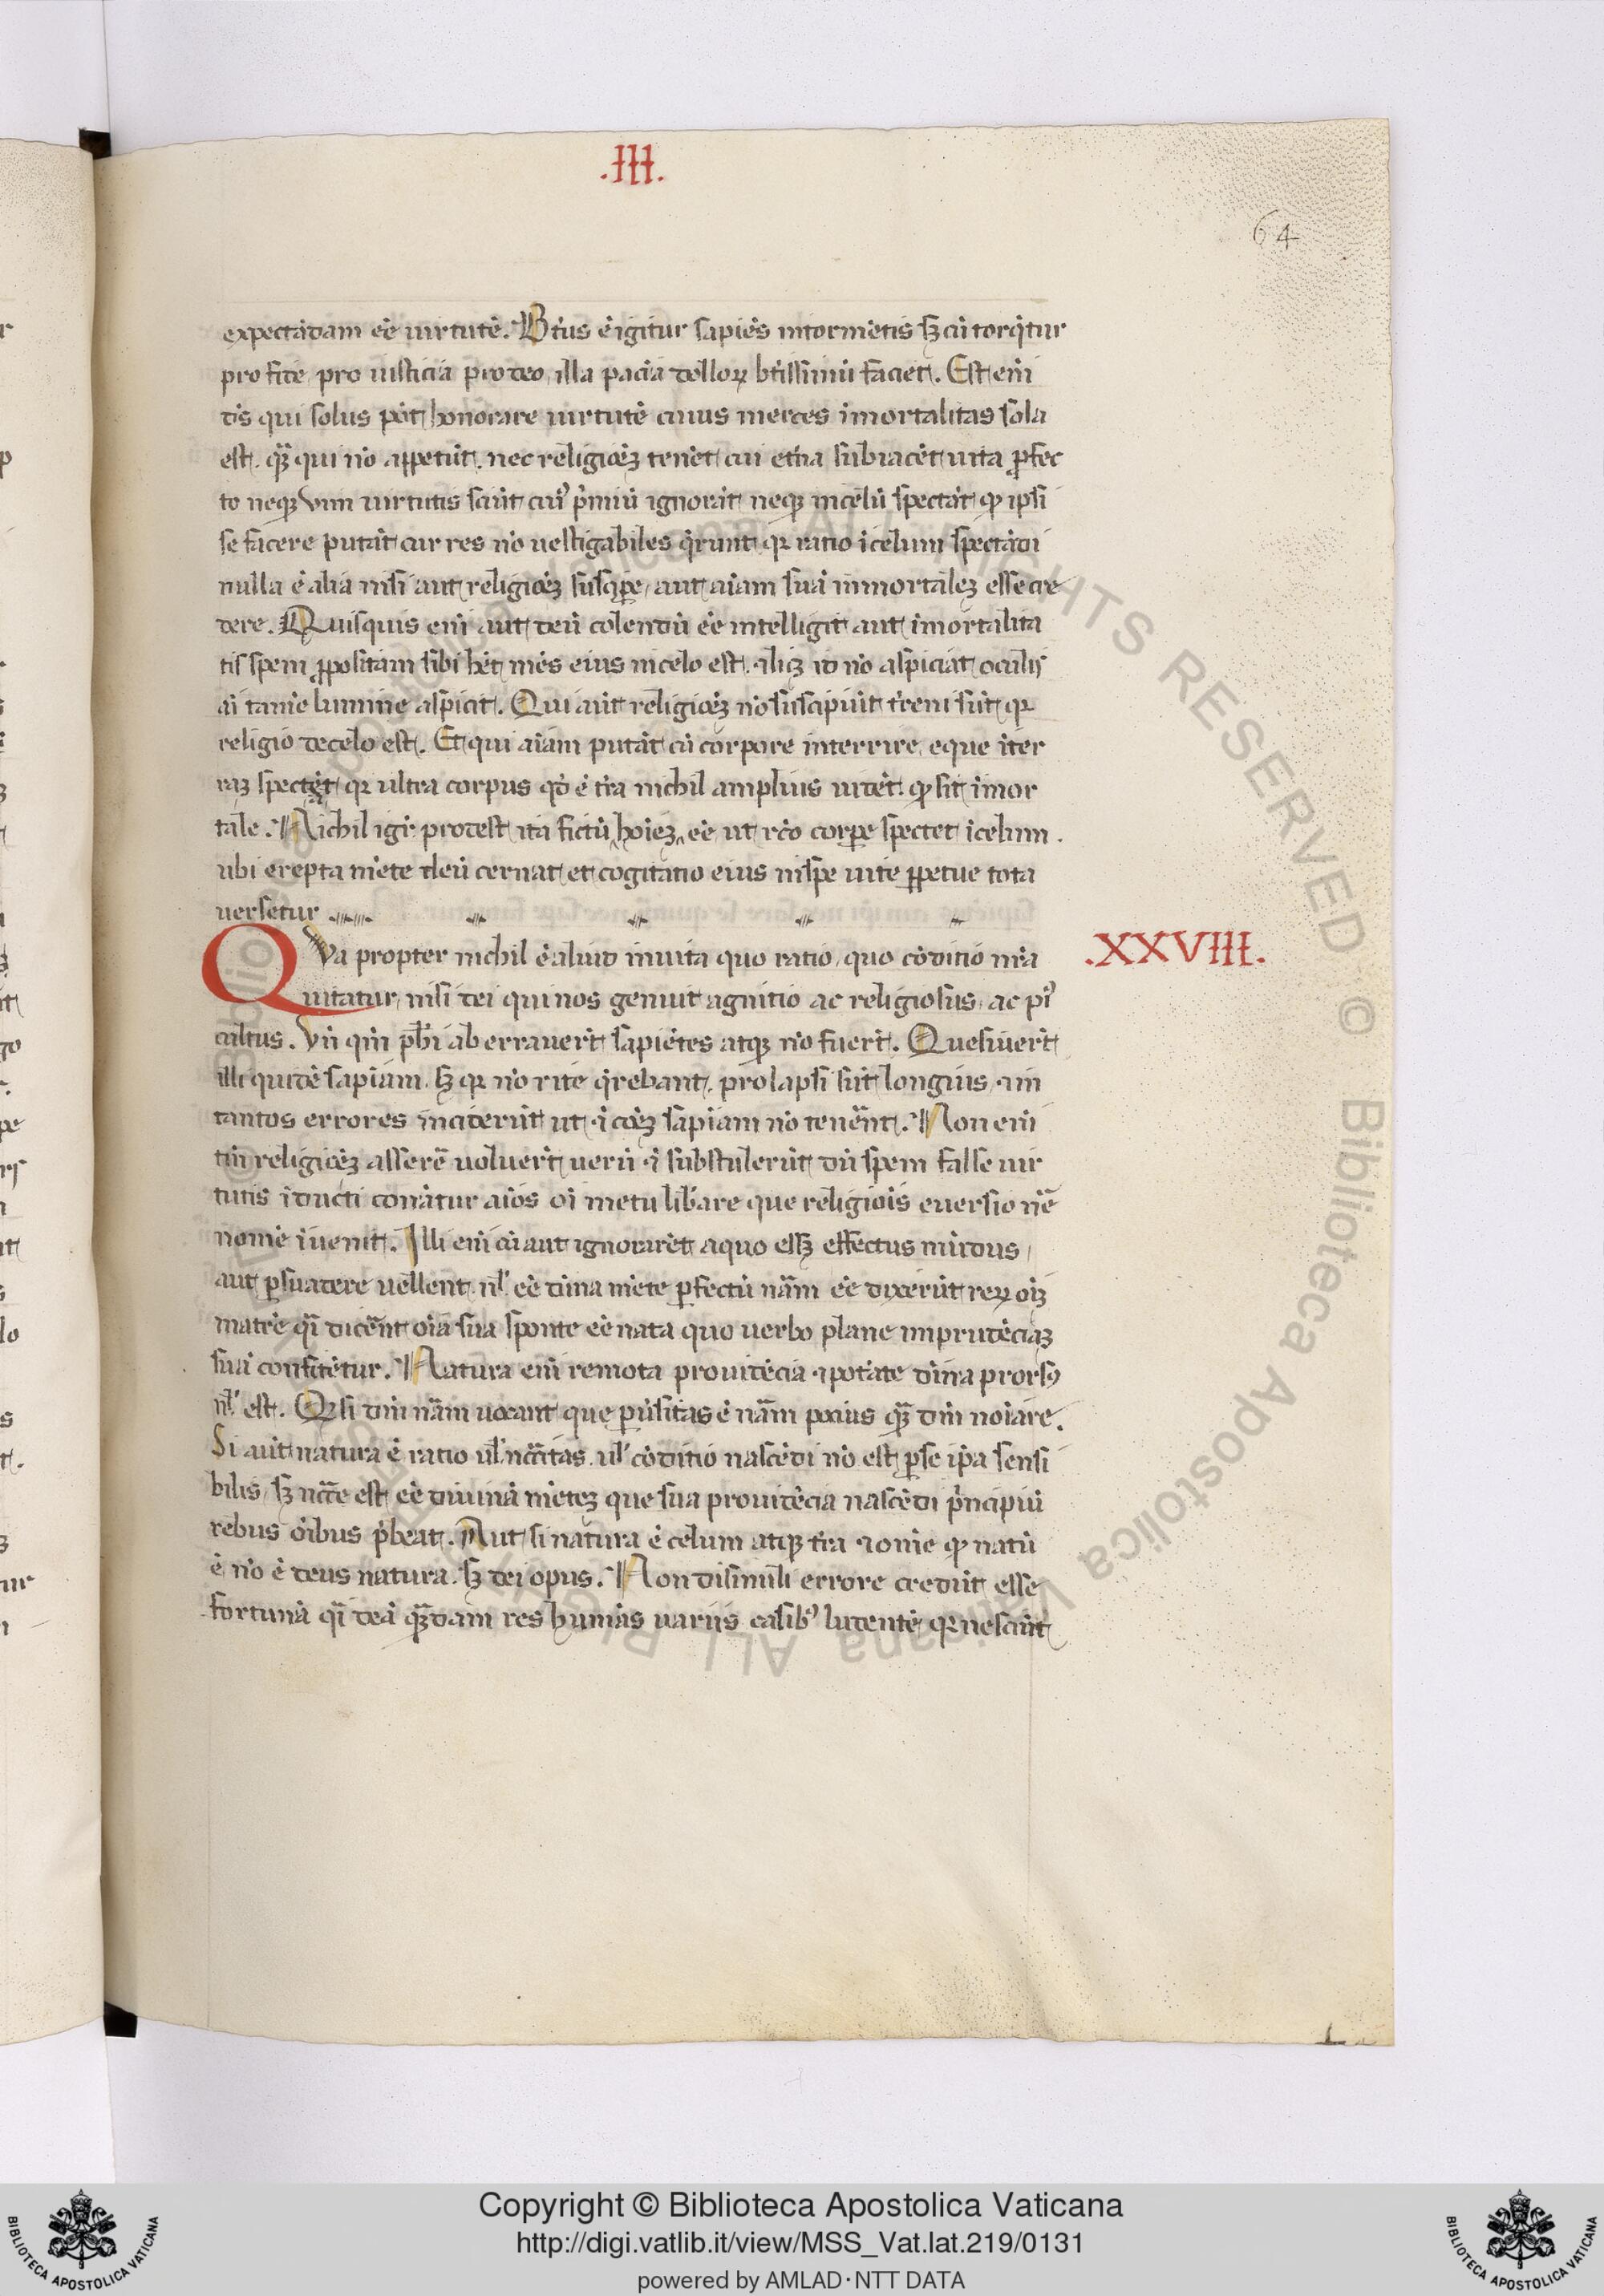 .III.
64
expectãdam eẽ uirtutẽ. Bt̃us ẽ igitur sapiẽs intormẽtis sꝫ cũ torq̃tur
pro fide, pro iusticia pro deo, illa paciã dolloꝝ bt̃issimũ faciet. Est enĩ
ds̃ qui solus põt honorare uirtutẽ cuius merces ĩmortalitas sola
est. quã qui nõ appetũt. nec religiõeꝫ tenẽt cui et̃na subiacẽt uita ꝓfec
to neqꝫ uim uirtutis sciũt cui᾽ p̃miũ ignorãt neqꝫ incelũ spectãt ꝙ ipsi
se facere putãt cur res nõ uestigabiles q̃runt qꝛ ratio ĩcelum spectãdi
nulla ẽ alia nisi aut religiõeꝫ suscipe᷒, aut aĩam suã inmortaleꝫ esse cre
dere. Quisquis enĩ aut deũ colendũ eẽ intelligit aut ĩmortalita
tis spem ꝓpositam sibi hẽt mẽs eius incelo est. ⁊licꝫ id nõ aspiciat oculis
aĩ tamẽ lumine aspicit. Qui aũt religiõeꝫ nõ suscipiũt t̃reni sũt qꝛ
religio decelo est. Et qui aĩam putãt cũ corpore interrire, eque ĩter
raꝫ spectẽt qꝛ ultra corpus qd̃ ẽ tr̃a nichil amplius uidẽt ꝙ sit ĩmor
tale. Nichil igr̃ prodest ita fictũ hoĩeꝫ eẽ ut rc̃o corpe᷒ spectet ĩcelum.
ubi erepta mẽte deũ cernat et cogitatio eius inspe uite ꝑpetue tota
uersetur
Qua propter nichil ẽ aliud inuita quo ratio, quo cõditio nr̃a
.XXVIII.
uitatur, nisi dei qui nos genuit agnitio ac religiosus, ac pi᾽
cultus. Vñ qm̃ ph̃i ab errauerũt sapiẽtes atqꝫ nõ fuerũt. Quesiuerũt
illi quidẽ sapiam. sꝫ qꝛ nõ rite q̃rebant. prolapsi sũt longius, ⁊ in
tantos errores inciderũt ut ⁊ ĩ cõeꝫ sapiam nõ tenerẽt. Non enĩ
tm̃ religiõeꝫ asserẽ uoluerũt uerũ ⁊ĩ substulerũt dũ spem false uir
tutis ĩducti conãtur aĩos oĩ metu lib᷒are que religiõis euersio nẽ
nomẽ ĩuenit. Illi enĩ cũ aut ignorarẽt aquo essꝫ effectus mũdus,
aut ꝑsuadere uellent nl᷒ eẽ diĩna mẽte ꝑfectũ nãm eẽ dixerũt reꝝ oĩꝫ
matrẽ q̃i dicerẽt oĩa sua sponte eẽ nata quo uerbo plane imprudẽciaꝫ
suã confitẽtur. Natura enĩ remota prouidẽcia ⁊potãte diĩna prorsꝯ
nl᷒ est. Qsi dm̃ nãm uocant que ꝑũsitas ẽ nãm pocius quã dm̃ noĩare.
Si aũt natura ẽ ratio ul᷒ nc̃cĩtas. ul᷒ cõditio nascẽdi nõ est ꝑse ip̃a sensi
bilis, sꝫ nc̃ce est eẽ diuinã mẽteꝫ que sua prouidẽcia nascẽdi p̃ncipiũ
rebus oĩbus p̃beat. Aut si natura ẽ celum atqꝫ tr̃a ⁊omẽ ꝙ natũ
ẽ nõ ẽ deus natura. sꝫ dei opus. Non disimili errore credũt esse
fortunã q̃i deã quãdam res humãs uariis casib᾽ ludentẽ qꝛ nesciũt
Copyright © Biblioteca Apostolica Vaticana
http://digi.vatlib.it/view/MSS_Vat.lat.219/0131
powered by AMLAD·NTT DATA